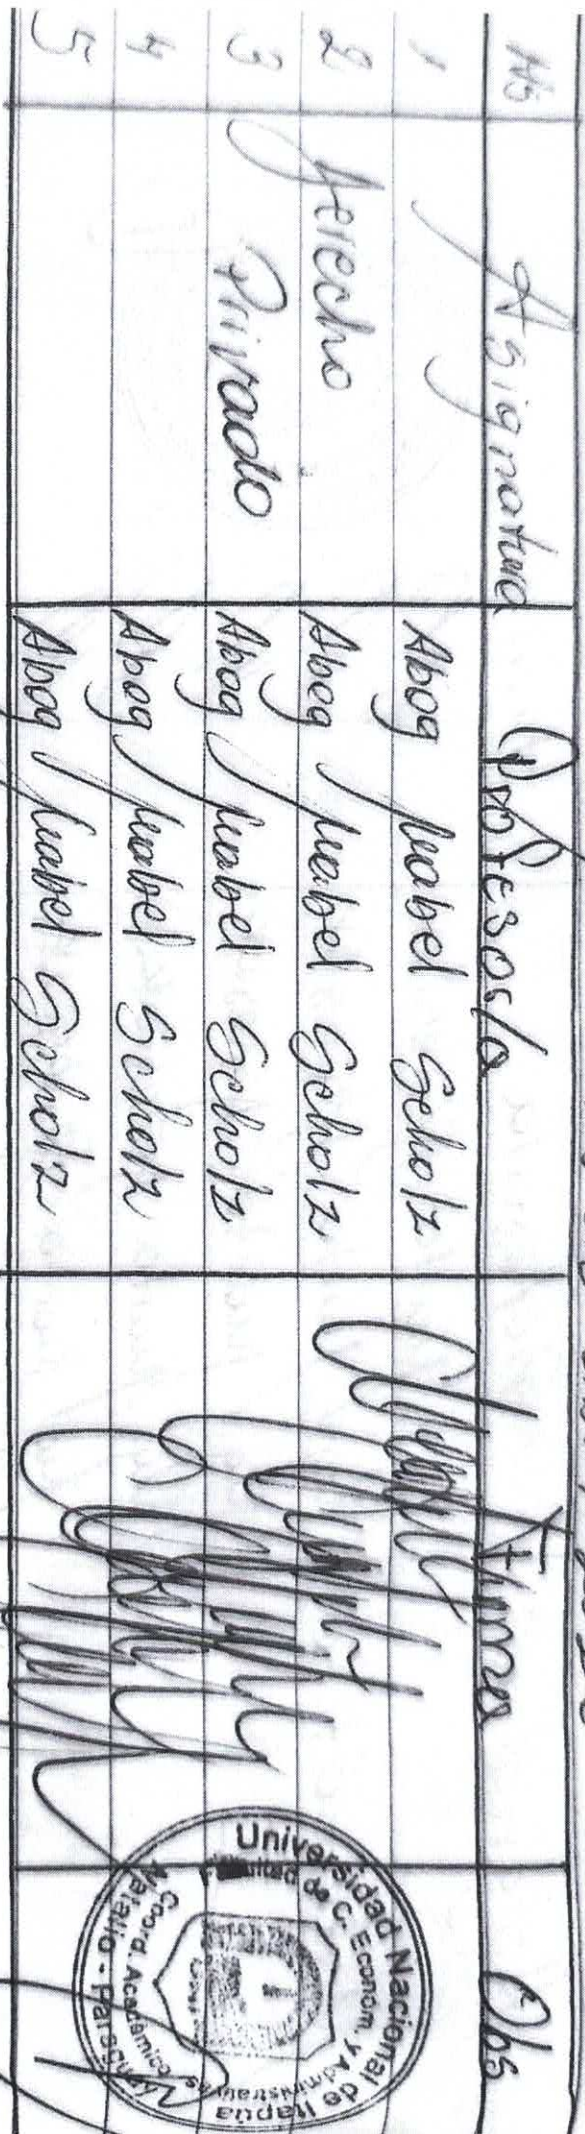 No Asignatura Profesor/a Firma Obs
1 Abog Mabel Scholz
2 Derecho Abog Mabel Scholz
3 Privado Abog Mabel Scholz
4 Abog Mabel Scholz
5 Abog Mabel Scholz
Universidad Nacional de Itapúa
Facultad de C. Econom. y Administrativas
Coord. Académica
Natalio - Paraguay